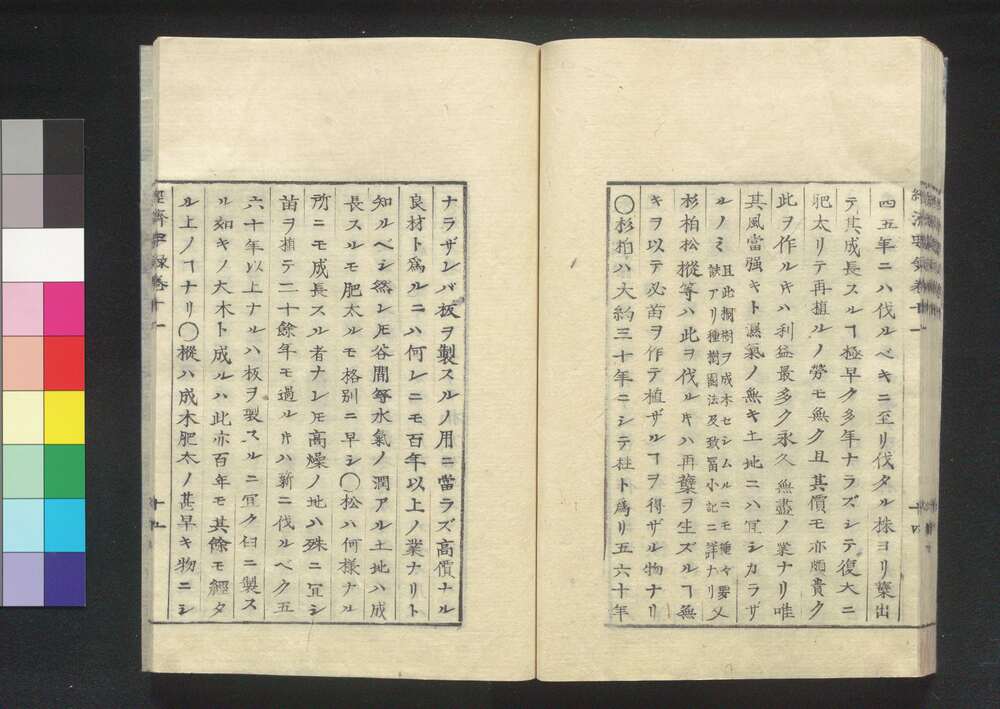 四五年ニハ伐ルベキニ至リ伐タル株ヨリ蘖出
テ其成長スルヿ極早ク多年ナラズシテ復大ニ
肥太リテ再植ルノ勞モ無ク且其價モ亦頗貴ク
此ヲ作ルキハ利益最多ク永久無盡ノ業ナリ唯
其風當强キト濕氣ノ無キ土地ニハ冝シカラザ
ルノミ
且此桐樹ヲ成木セシムルニモ種々要
訣アリ種樹園法及致富小記ニ詳ナリ
又
杉柏松樅等ハ此ヲ伐ルキハ再蘖ヲ生ズルヿ無
キヲ以テ必苗ヲ作テ植ザルヿヲ得ザル物ナリ
〇杉柏ハ大約三十年ニシテ柱ト爲リ五六十年
ナラザレバ板ヲ製スルノ用ニ當ラズ高價ナル
良材ト爲ルニハ何レニモ百年以上ノ業ナリト
知ルベシ然レ𪜈谷間等水氣ノ潤アル土地ハ成
長スルモ肥太ルモ格別ニ早シ〇松ハ何樣ナル
所ニモ成長スル者ナレ𪜈高燥ノ地ハ殊ニ冝シ
苗ヲ植テ二十餘年モ過ルキハ新ニ伐ルベク五
六十年以上ナルハ板ヲ製スルニ冝ク臼ニ製ス
ル如キノ大木ト成ルハ此亦百年モ其餘モ經タ
ル上ノヿナリ〇樅ハ成木肥太ノ甚早キ物ニシ
經濟要録卷十一
十五